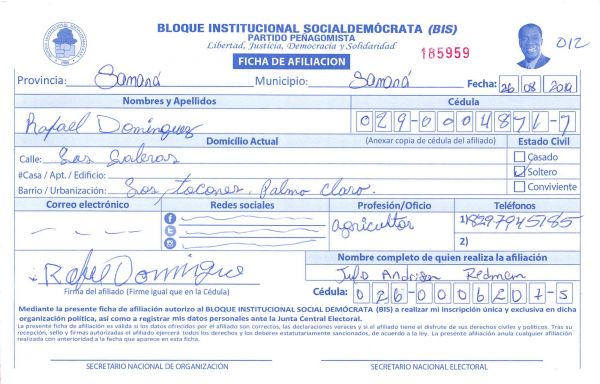 BLOQUE INSTITUCIONAL SOCIALDEMÓCRATA (BIS)
PARTIDO PEÑAGOMISTA
Libertad, Justicia, Democracia y Solidaridad
FICHA DE AFILIACION
185959
012
Provincia: Samaná Municipio: Samaná Fecha: 26 08 2019
Nombres y Apellidos Cédula
Rafael Dominguez 029-0004871-7
Domicilio Actual (Anexar copia de cédula del afiliado) Estado Civil
Calle: Las Galeras Casado
#Casa / Apt. / Edificio: Soltero
Barrio / Urbanización: Los tocones, Palmo Claro. Conviviente
Correo electrónico Redes sociales Profesión/Oficio Teléfonos
agricultor 1) 8297945185
2)
Rafael Domingue
Nombre completo de quien realiza la afiliación
Julo Redman
Firma del afiliado (Firme igual que en la Cédula) Cédula: 026-0006207-5
Mediante la presente ficha de afiliación autorizo al BLOQUE INSTITUCIONAL SOCIAL DEMÓCRATA (BIS) a realizar mi inscripción única y exclusiva en dicha
organización política, así como a registrar mis datos personales ante la Junta Central Electoral.
La presente ficha de afiliación es válida si los datos ofrecidos por el afiliado son correctos, las declaraciones veraces y si el afiliado tiene el disfrute de sus derechos civiles y políticos. Tras su
recepción, sello y firmas autorizadas el afiliado ejercerá todos los derechos y los deberes estatutariamente sancionados, de acuerdo a la ley. La presente afiliación anula cualquier afiliación
realizada con anterioridad a la fecha que aparece en esta ficha.
SECRETARIO NACIONAL DE ORGANIZACIÓN SECRETARIO NACIONAL ELECTORAL